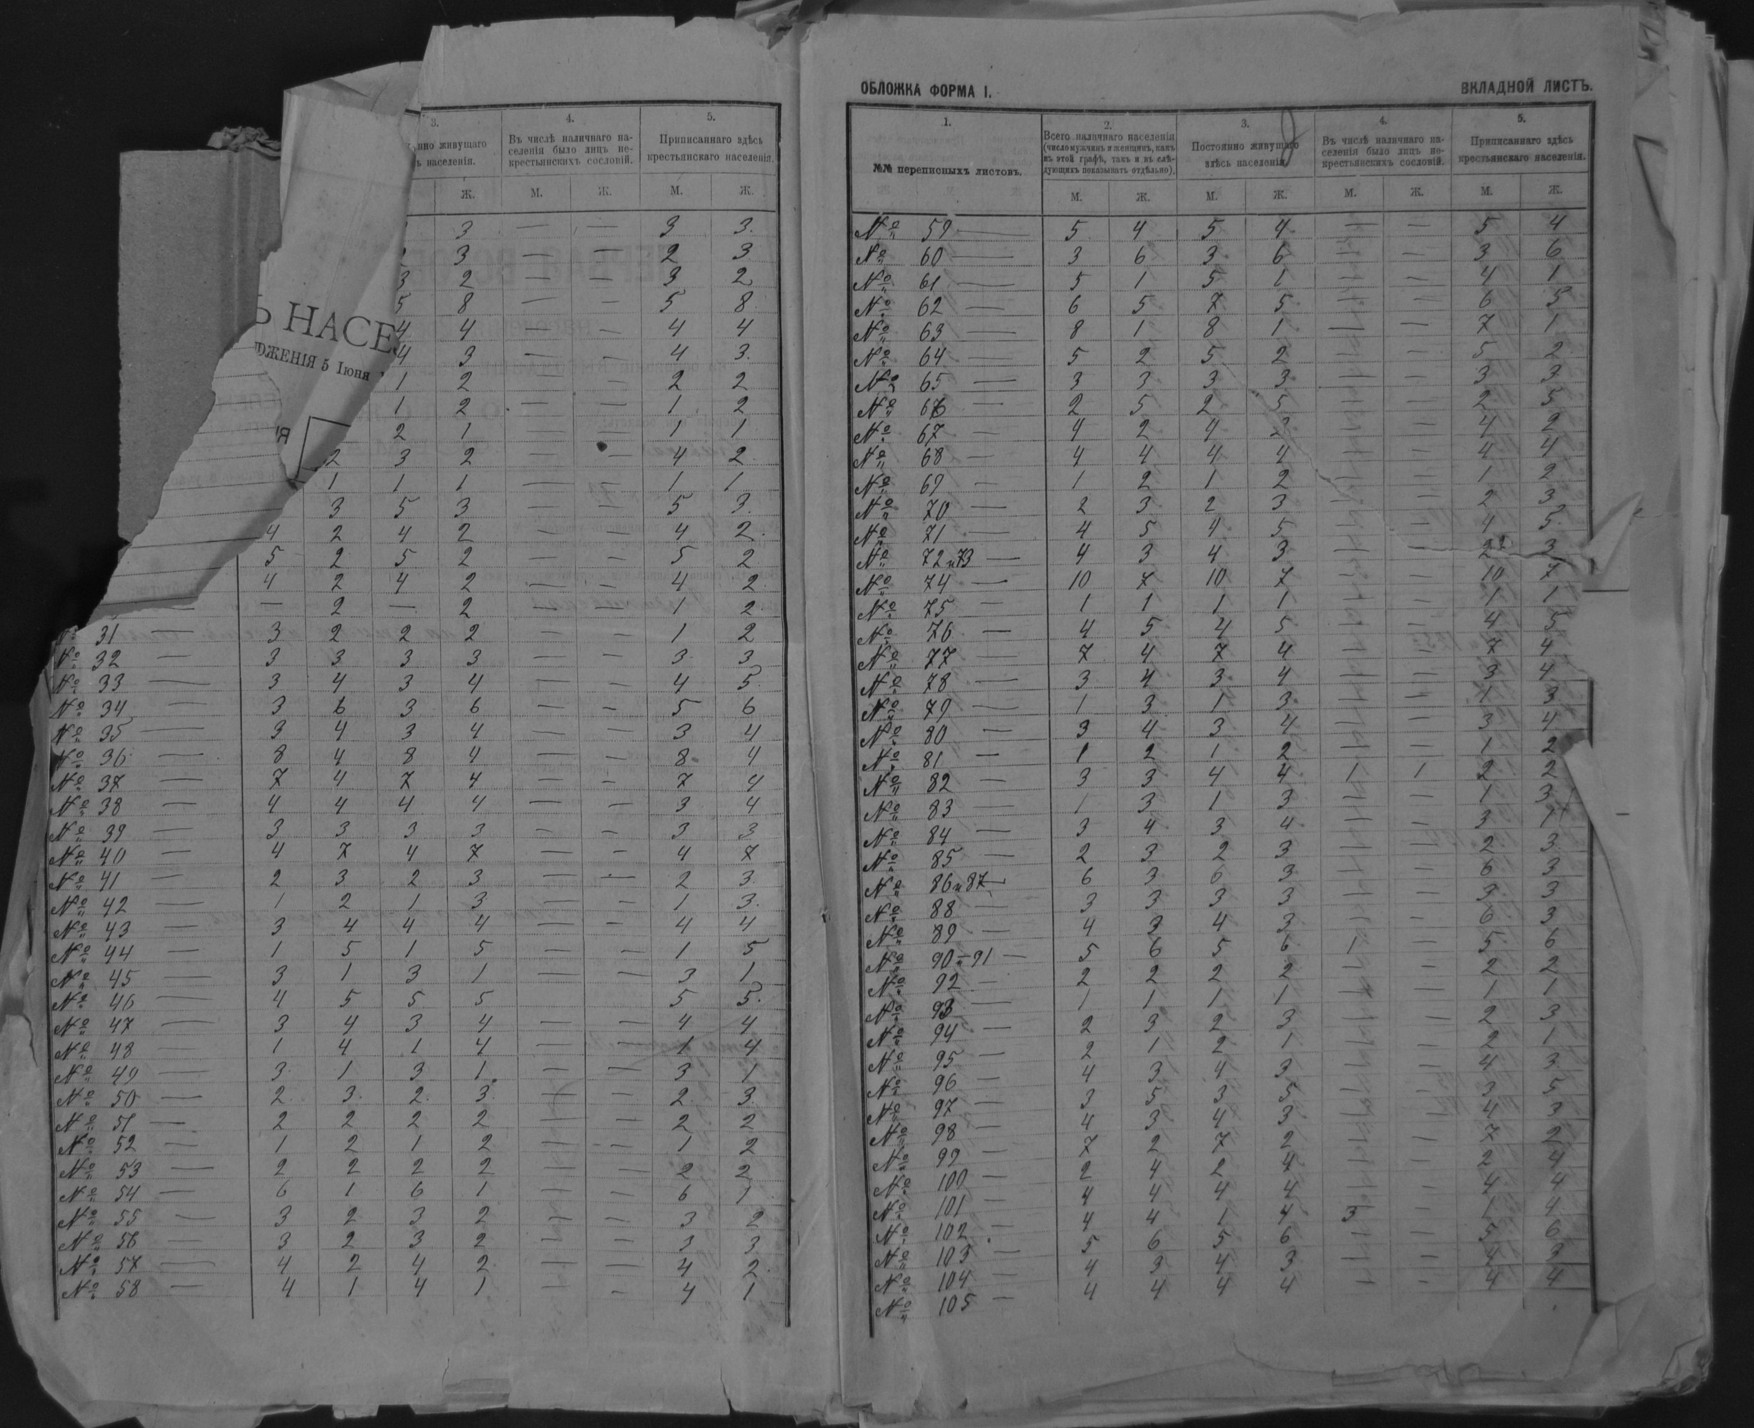 Ь НАСЕ
ОЖЕНІЯ 5 Іюня
ІЯ
3. 4. 5.
нно живущаго Въ числѣ наличнаго на- Приписаннаго здѣсь
населенія. селенія было лицъ не- крестьянскаго населенія.
крестьянскихъ сословій.
Ж. М. Ж. М. Ж.
3 — — 3 3
3 — — 2 3
3 2 — — 3 2
5 8 — — 5 8
4 4 — — 4 4
4 3 — — 4 3
1 2 — — 2 2
1 2 — — 1 2
2 1 — — 1 1
2 3 2 — — 4 2
1 1 1 — — 1 1
3 5 3 — — 5 3
4 2 4 2 — — 4 2
5 2 5 2 — — 5 2
4 2 4 2 — — 4 2
— 2 — 2 — — 1 2
№ 31 — 3 2 2 2 — — 1 2
№ 32 — 3 3 3 3 — — 3 3
№ 33 — 3 4 3 4 — — 4 5
№ 34 — 3 6 3 6 — — 5 6
№ 35 — 3 4 3 4 — — 3 4
№ 36 — 8 4 8 4 — — 8 4
№ 37 — 7 4 7 4 — — 7 4
№ 38 — 4 4 4 4 — — 3 4
№ 39 — 3 3 3 3 — — 3 3
№ 40 — 4 7 4 7 — — 4 7
№ 41 — 2 3 2 3 — — 2 3
№ 42 — 1 2 1 3 — — 1 3
№ 43 — 3 4 4 4 — — 4 4
№ 44 — 1 5 1 5 — — 1 5
№ 45 — 3 1 3 1 — — 3 1
№ 46 — 4 5 5 5 — — 5 5
№ 47 — 3 4 3 4 — — 4 4
№ 48 — 1 4 1 4 — — 1 4
№ 49 — 3 1 3 1 — — 3 1
№ 50 — 2 3 2 3 — — 2 3
№ 51 — 2 2 2 2 — — 2 2
№ 52 — 1 2 1 2 — — 1 2
№ 53 — 2 2 2 2 — — 2 2
№ 54 — 6 1 6 1 — — 6 1
№ 55 — 3 2 3 2 — — 3 2
№ 56 — 3 2 3 2 — — 3 3
№ 57 — 4 2 4 2 — — 4 2
№ 58 — 4 1 4 1 — — 4 1
ОБЛОЖКА ФОРМА I. ВКЛАДНОЙ ЛИСТЪ.
1. 2. 3. 4. 5.
№№ переписныхъ листовъ.
Всего наличнаго населенія
(число мужчинъ и женщинъ, какъ
въ этой графѣ, такъ и въ слѣ-
дующихъ показывать отдѣльно).
Постоянно живущаго
здѣсь населенія.
Въ числѣ наличнаго на-
селенія было лицъ не-
крестьянскихъ сословій.
Приписаннаго здѣсь
крестьянскаго населенія.
М. Ж. М. Ж. М. Ж. М. Ж.
№ 59 — 5 4 5 4 — — 5 4
№ 60 — 3 6 3 6 — — 3 6
№ 61 — 5 1 5 1 — — 4 1
№ 62 — 6 5 7 5 — — 6 5
№ 63 — 8 1 8 1 — — 7 1
№ 64 — 5 2 5 2 — — 5 2
№ 65 — 3 3 3 3 — — 3 3
№ 66 — 2 5 2 5 — — 2 5
№ 67 — 4 2 4 2 — — 4 2
№ 68 — 4 4 4 4 — — 4 4
№ 69 — 1 2 1 2 — — 1 2
№ 70 — 2 3 2 3 — — 2 3
№ 71 — 4 5 4 5 — — 4 5
№ 72 и 73 — 4 3 4 3 — — 2 3
№ 74 — 10 7 10 7 — — 10 7
№ 75 — 1 1 1 1 — — 1 1
№ 76 — 4 5 4 5 — — 4 5
№ 77 — 7 4 7 4 — — 7 4
№ 78 — 3 4 3 4 — — 3 4
№ 79 — 1 3 1 3 — — 1 3
№ 80 — 3 4 3 4 — — 3 4
№ 81 — 1 2 1 2 — — 1 2
№ 82 — 3 3 4 4 1 1 2 2
№ 83 — 1 3 1 3 — — 1 3
№ 84 — 3 4 3 4 — — 3
№ 85 — 2 3 2 3 — — 2 3
№ 86 и 87 — 6 3 6 3 — — 6 3
№ 88 — 3 3 3 3 — — 3 3
№ 89 — 4 3 4 3 — — 6 3
№ 90 — 91 — 5 6 5 6 — — 5 6
№ 92 — 2 2 2 2 — — 2 2
№ 93 — 1 1 1 1 — — 1 1
№ 94 — 2 3 2 3 — — 2 3
№ 95 — 2 1 2 1 — — 2 1
№ 96 — 4 3 4 3 — — 4 3
№ 97 — 3 5 3 5 — — 3 5
№ 98 — 4 3 4 3 — — 4 3
№ 99 — 7 2 7 2 — — 7 2
№ 100 — 2 4 2 4 — — 2 4
№ 101 — 4 4 4 4 — — 4 4
№ 102 4 4 1 4 3 — 1 4
№ 103 — 5 6 5 6 — — 5 6
№ 104 — 4 3 4 3 — — 3
№ 105 — 4 4 4 4 — — 4 4